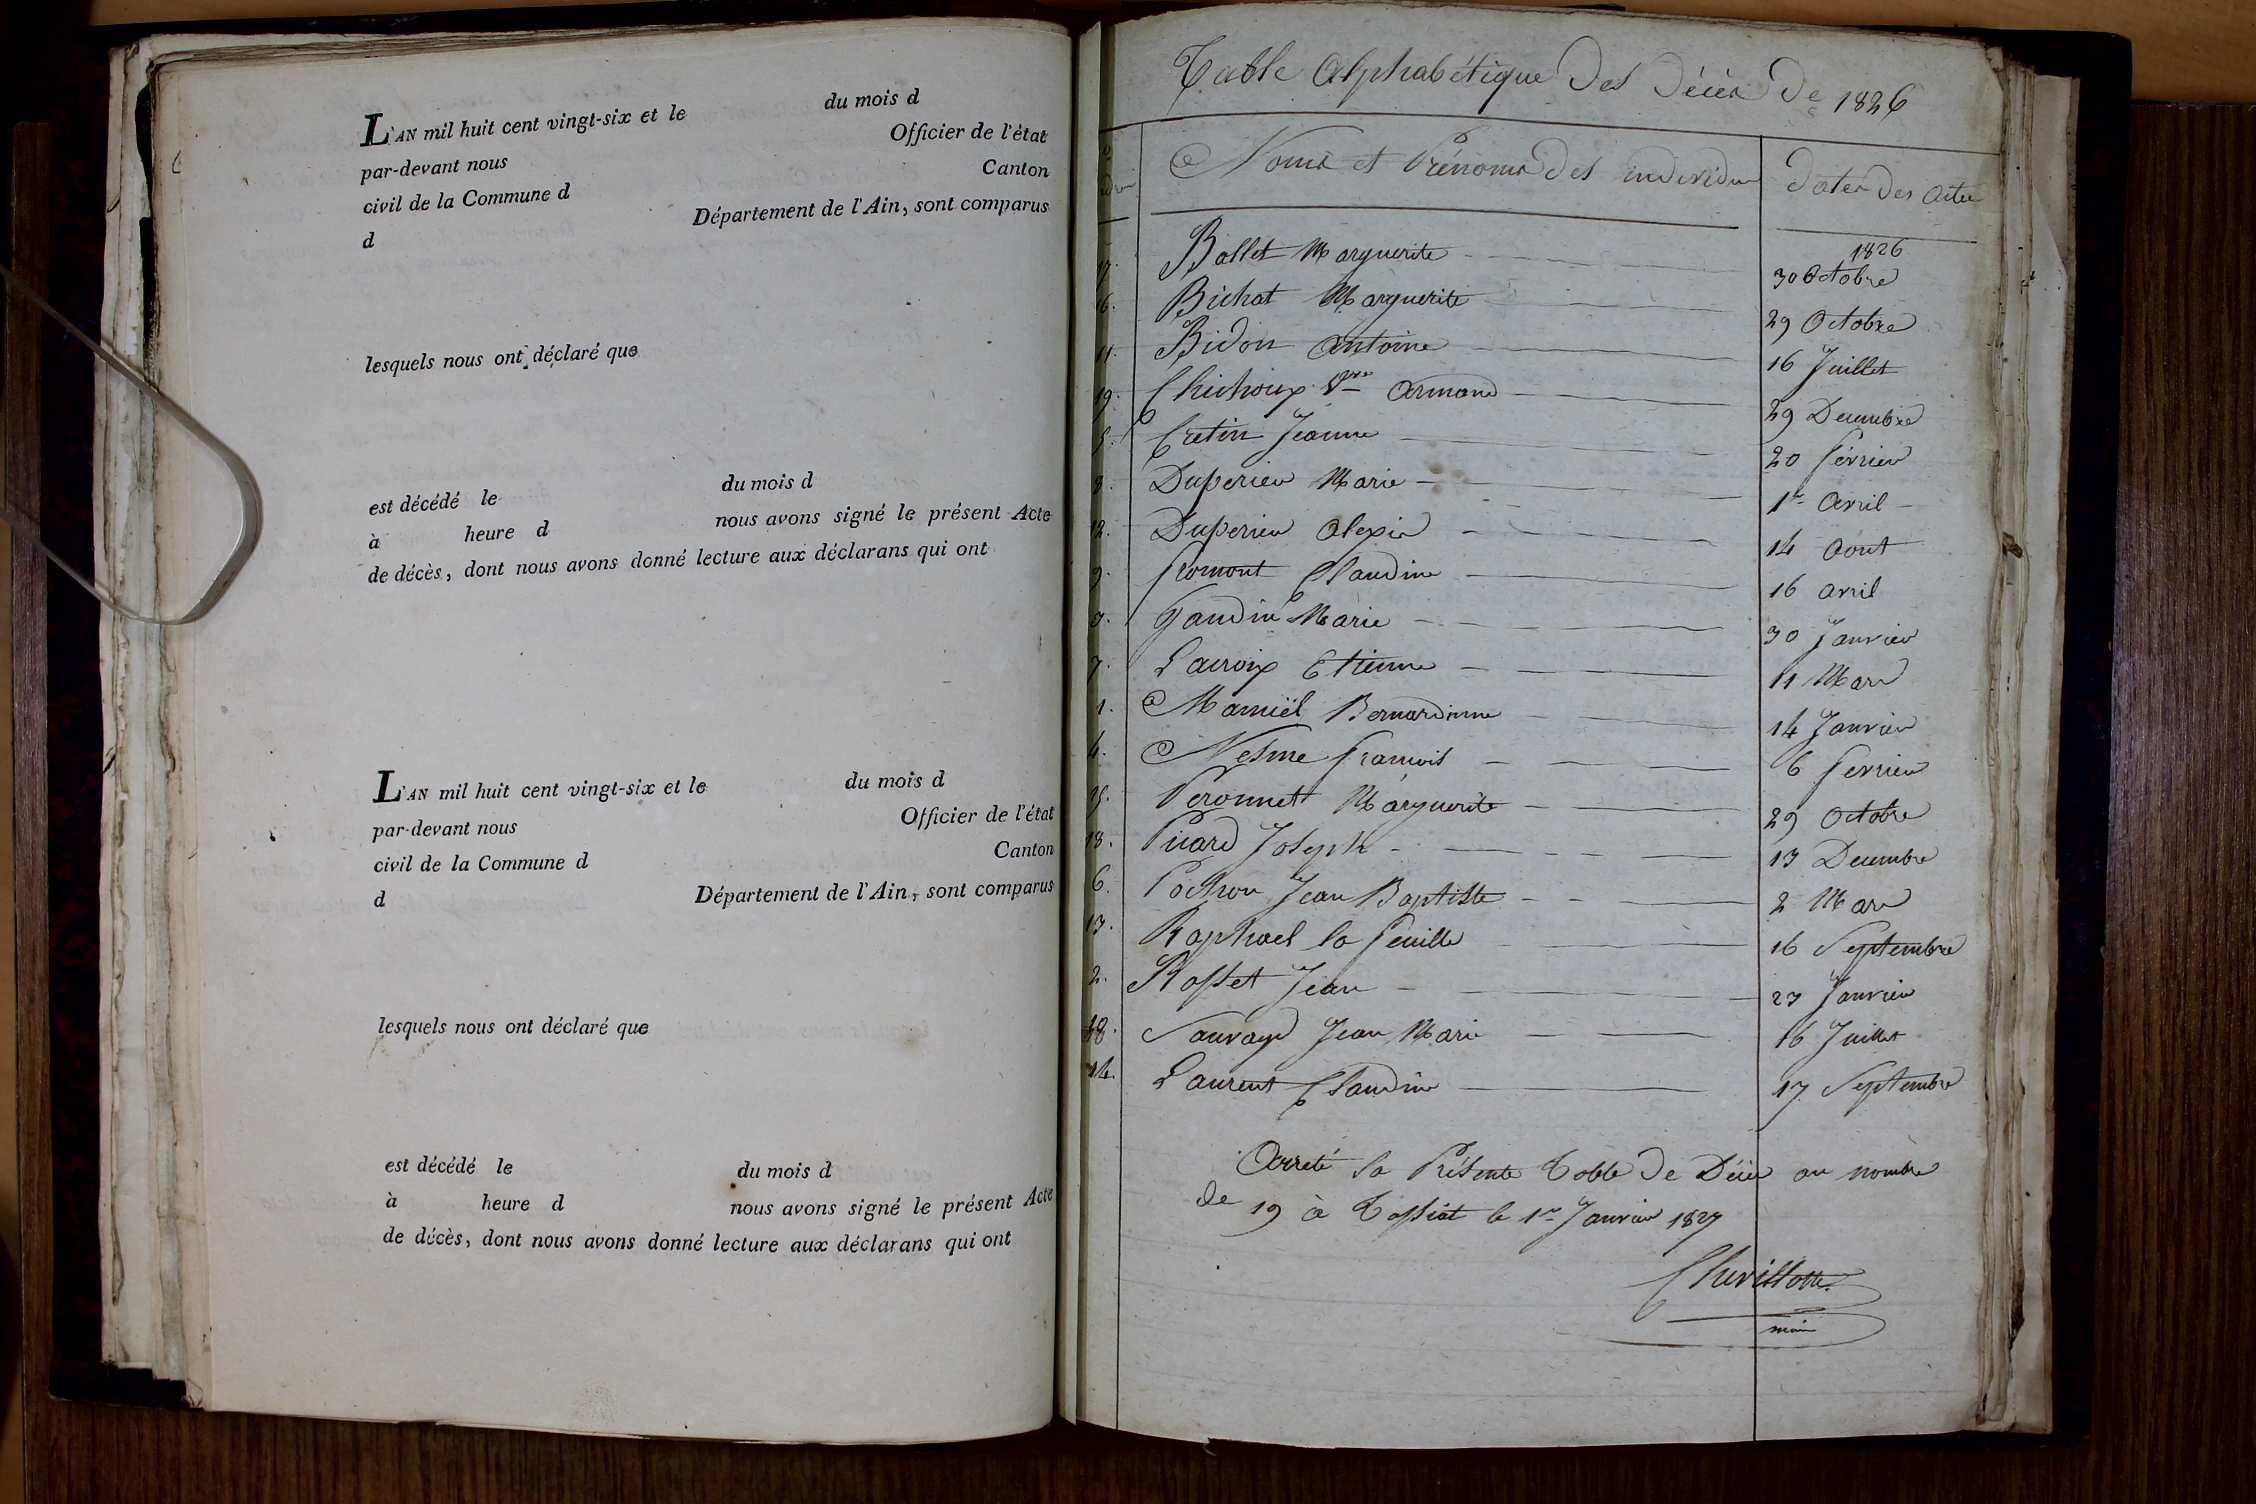 L'AN mil huit cent vingt-six et le du mois d
par-devant nous Officier de l'état
civil de la Commune d Canton
d Département de l'Ain, sont comparus
lesquels nous ont déclaré que
est décédé le du mois d
à heure d nous avons signé le présent Acte
de décès, dont nous avons donné lecture aux déclarans qui ont
L'AN mil huit cent vingt-six et le du mois d
par-devant nous Officier de l'état
civil de la Commune d Canton
d Département de l'Ain, sont comparus
lesquels nous ont déclaré que
est décédé le du mois d
à heure d nous avons signé le présent Acte
de décès, dont nous avons donné lecture aux déclarans qui ont
Table Alphabétique des Décès de 1826
Noms et Prénoms des individus dates des actes
1826
17. Ballet Marguerite 30 Octobre
16. Bichat Marguerite 29 Octobre
11. Bidon Antoine 16 Juillet
19. Armand 29 Decembre
5. Cretin Jeanne 20 fevrier
8. Duperier Marie 1er Avril
12. Duperier Alexis 14 Aout
9. fromont Claudine 16 avril
3. Gaudin Marie 30 Janvier
7. Lacroix Etienne 11 Mars
1. Mamiël Bernardinne 14 Janvier
4. Nesme francois 6 fevrier
15. Peronnet Marguerite 29 Octobre
18. Picard Joseph 13 Decembre
6. Pochon Jean Baptiste 2 Mars
13. Raphael la feuille 16 Septembre
2. Rosset Jean 23 Janvier
Sauvage Jean Marie 16 Juillet
14. Laurent Claudine 17 Septembre
Arreté la Présente Table de Décès au nombre
de 19 à Tossiat le 1er Janvier 1827
Chevillotte
maire